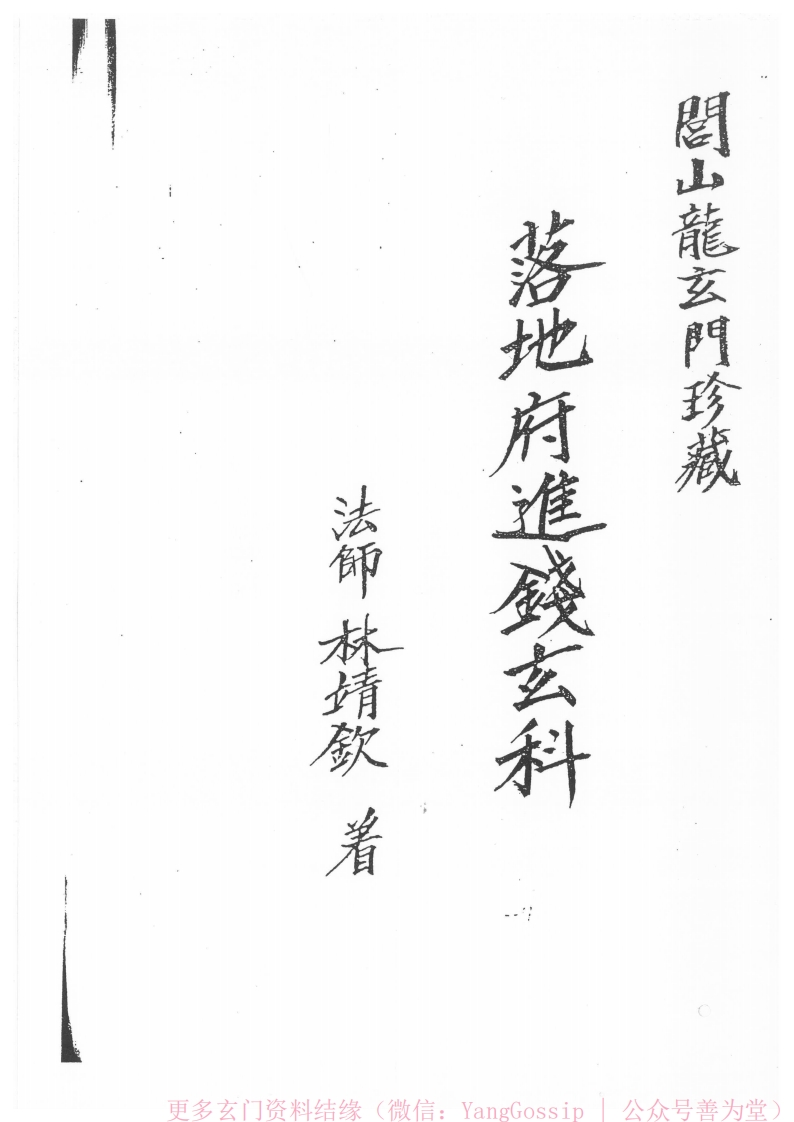 閭山龍玄門珍藏
落地府進錢玄科
法師 林靖欽 著
更多玄门资料结缘（微信：YangGossip | 公众号善为堂）